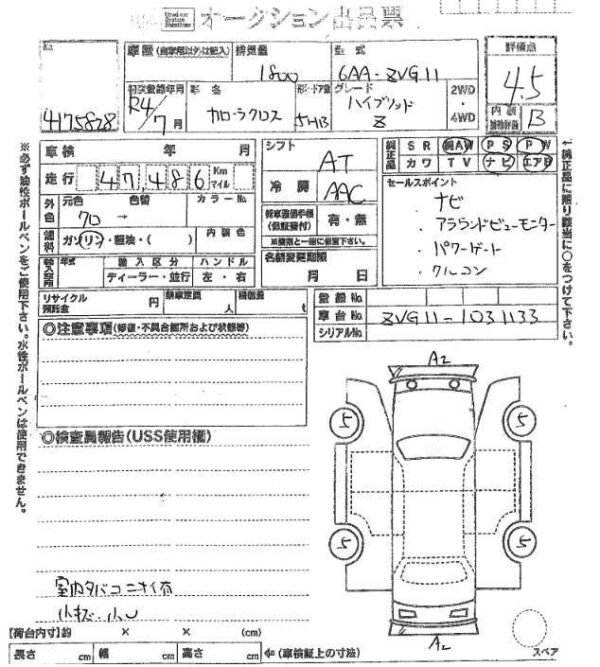 オークション出品票
No.
4175828
車歴 (自家用以外は記入) 排気量 型式 評価点
1800 6AA-ZVG11 4.5
初度登録年月 車名 形・ドア数 グレード 2WD ・ 4WD 内装 補助評価
R4/7月 カローラクロス 5HB ハイブリッド Z B
車検 年 月
走行 47,486 Km マイル
外色 元色 色替 カラーNo.
クロ →
燃料 ガソリン・軽油・( ) 内装色
輸入車 年式 輸入区分 ハンドル
ディーラー・並行 左・右
シフト AT
冷房 AAC
新車整備手帳 (保証書付) 有・無
※書類と一緒に保管下さい。
名義変更期限
月 日
純正品 SR AW PS PW
カワ TV ナビ エアB
セールスポイント
ナビ
・アラウンドビューモニター
・パワーゲート
・クルコン
リサイクル預託金 円 乗車定員 人 積載量 t
登録No.
車台No. ZVG11-1031133
シリアルNo.
◎注意事項(修復・不具合箇所および状態等)
A2
5 5
◎検査員報告(USS使用欄)
5 5
室内タバコニオイ有
小キズ.小U
A2
スペア
【荷台内寸】約 × × (cm)
長さ cm 幅 cm 高さ cm ⇦(車検証上の寸法)
※必ず油性ボールペンをご使用下さい。水性ボールペンは使用できません。
↑純正品に限り該当に○をつけて下さい。